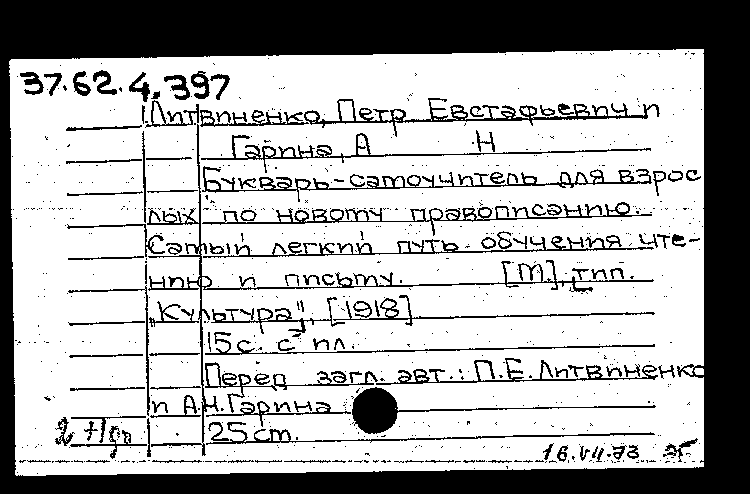 37.62.4.397
Литвиненко, Петр Евстафьевич и
Гарина, А Н
Букварь-самоучитель для взрос
лых по новому правописанию.
Самый легкий путь обучения чте-
нию и письму. [М], тип.
"Культура", [1918]
15с. с ил.
Перед загл. авт.: П.Е.Литвиненко
и А.Н.Гарина
25 cm.
18.VII.73